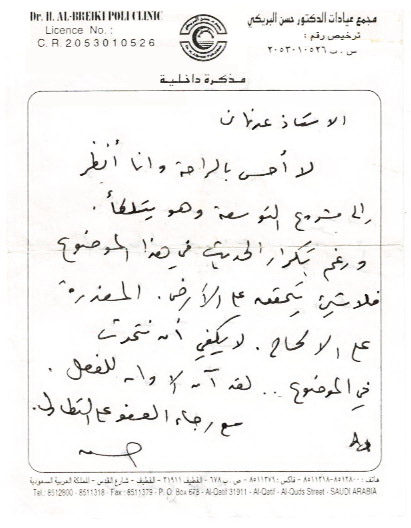 Dr. H. AL-BREIKI POLI CLINIC
Licence No. :
C.R. 2053010526
مجمع عيادات الدكتور حسن البريكي
ترخيص رقم :
س . ت ٢٠٥٣٠١٠٥٢٦
مذكرة داخلية
الاستاذ عدنان
لا أحس بالراحة وانا أنظر
إلى مشروع التوسعة وهو يتلكأ .
ورغم تكرار الحديث في هذا الموضوع
فلا شيئ يتحقق على الأرض . المعذرة
على الالحاح . لا يكفي أن نتحدث
في الموضوع .. لقد آن الأوان للفعل .
مع رجاء العفو على التطاول .
هاتف : ٨٥١٢٨٠٠ - ٨٥١١٣١٨ - فاكس : ٨٥١١٣٧٩ - ص . ب ٦٧٨ - القطيف ٣١٩١١ - القطيف - شارع القدس - المملكة العربية السعودية
Tel.: 8512800 - 8511318 - Fax : 8511379 - P. O. Box 678 - Al-Qatif 31911 - Al-Qatif - Al-Quds Street - SAUDI ARABIA